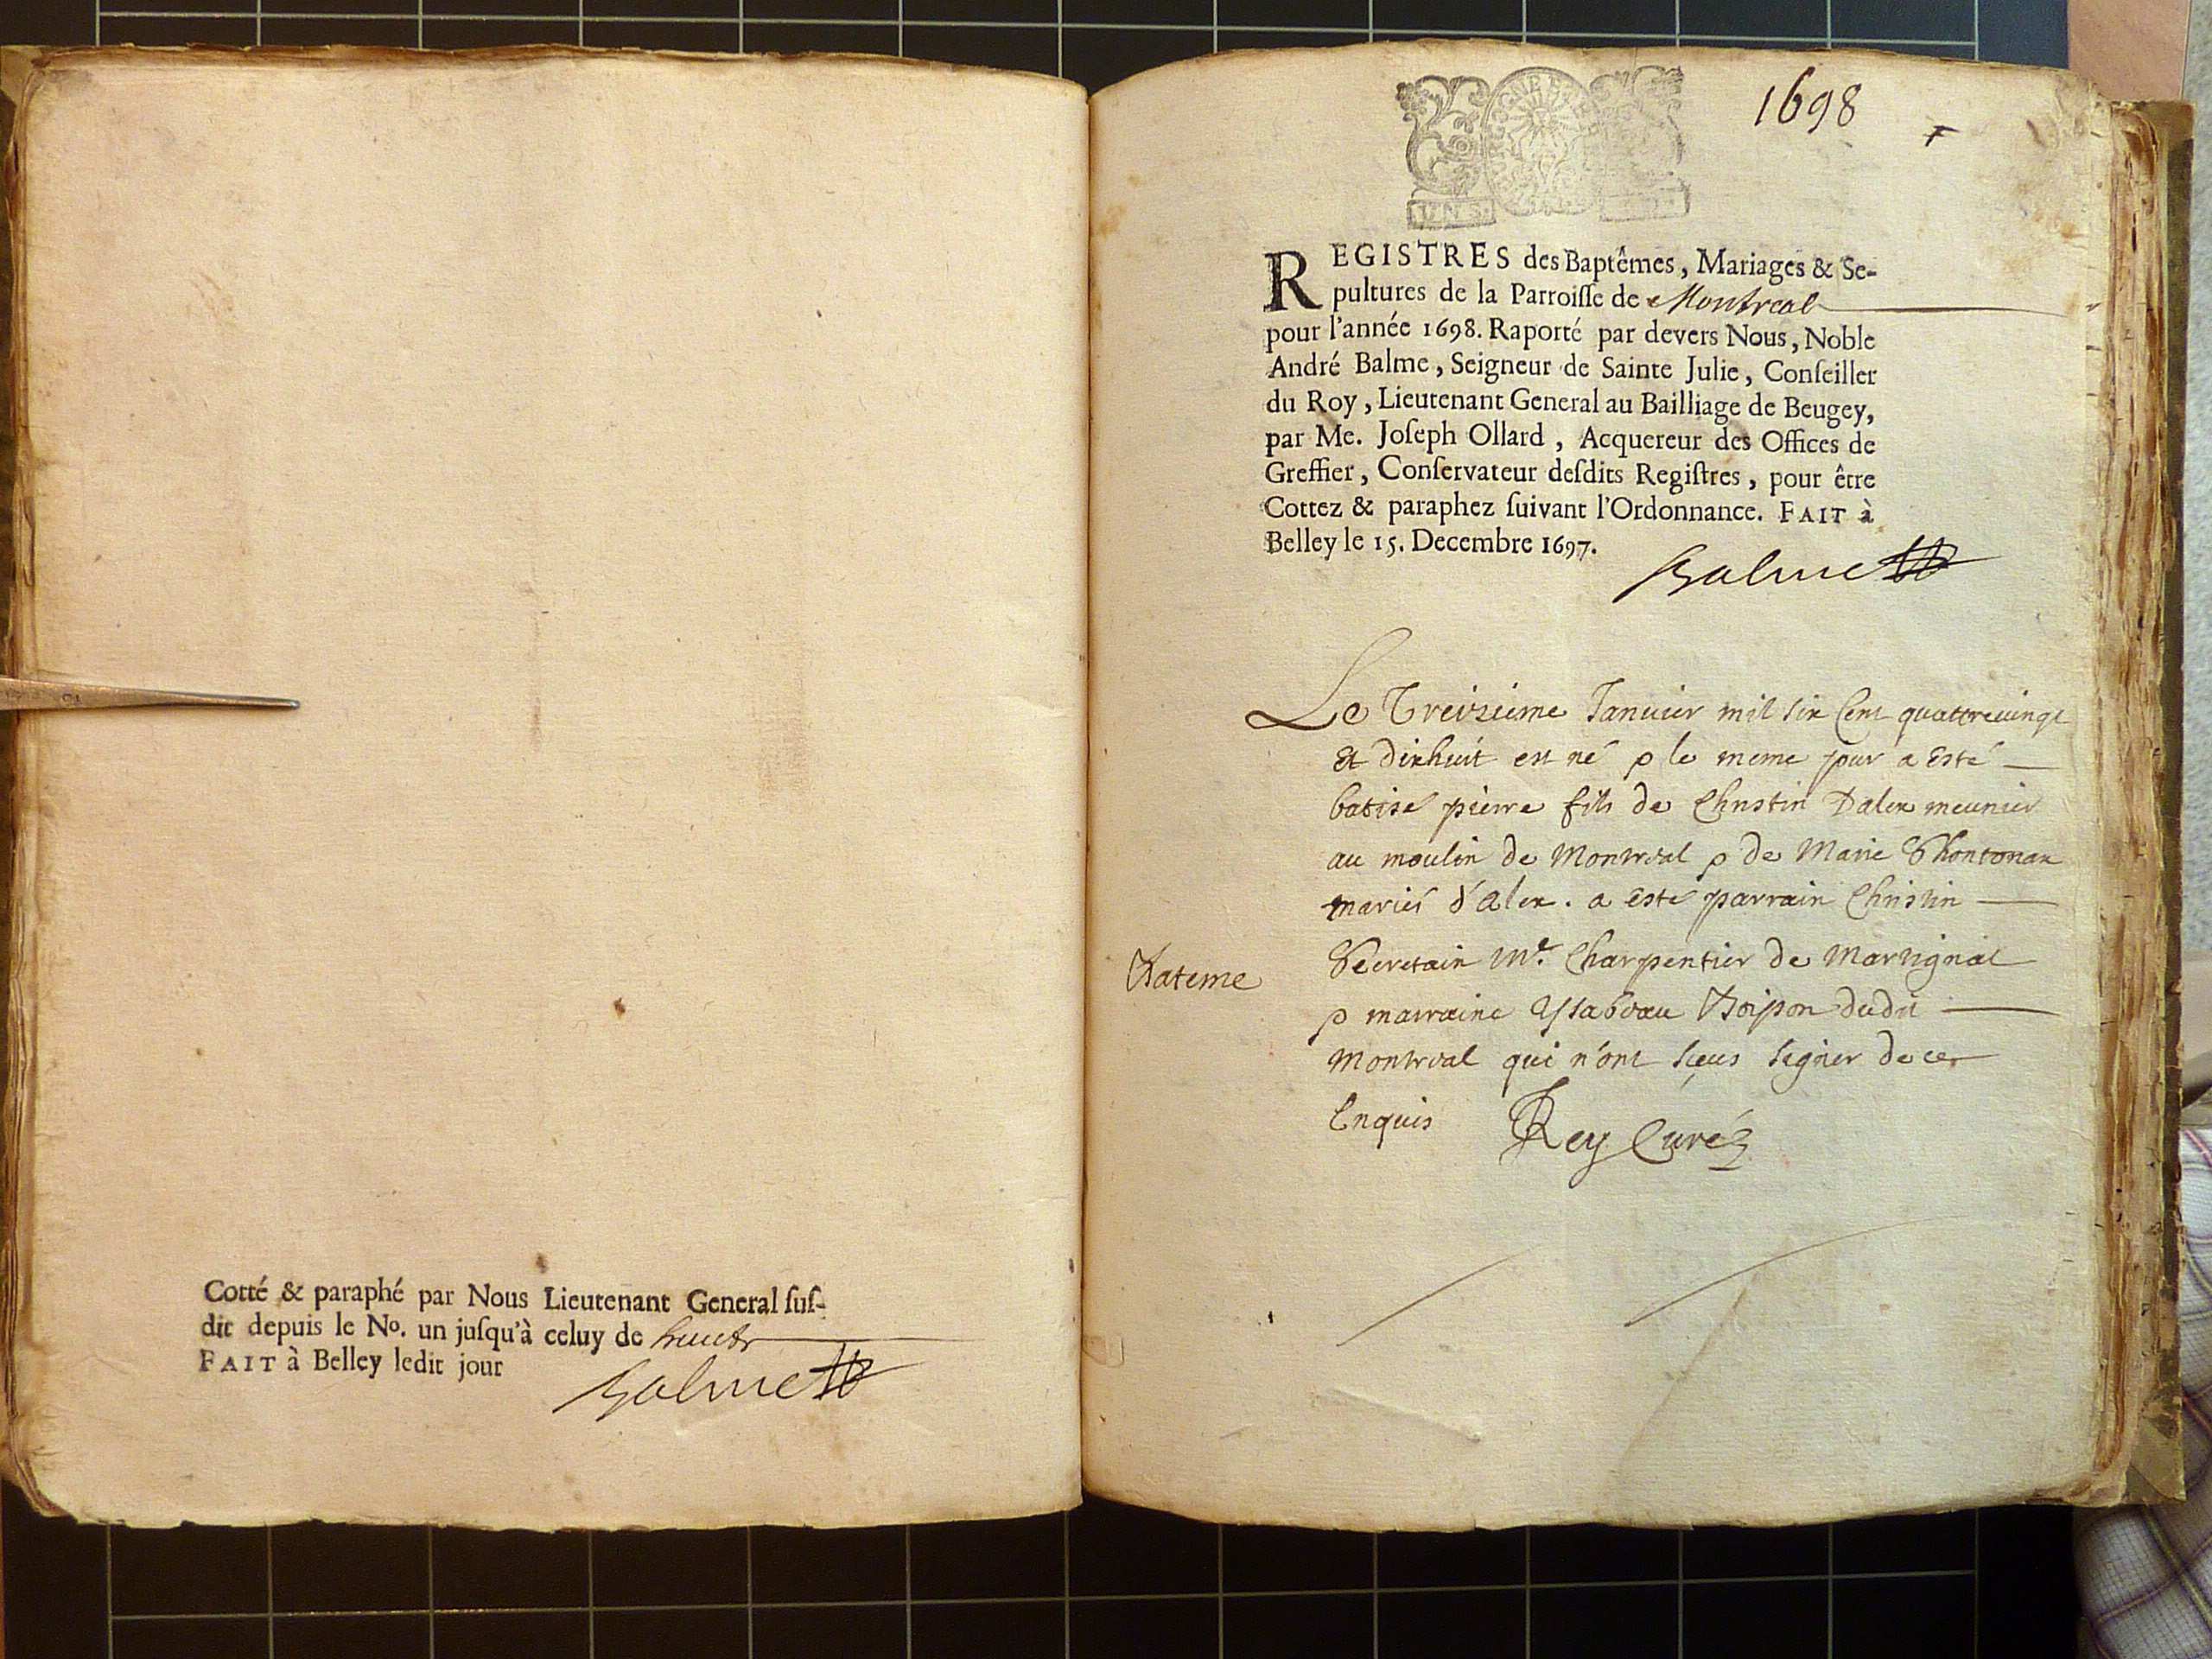 Cotté & paraphé par Nous Lieutenant General suſ-
dit depuis le No. un juſqu'à celuy de huict
FAIT à Belley ledit jour
Balme
1698
REGISTRES des Baptêmes, Mariages & Se-
pultures de la Parroiſſe de Montreal
pour l'année 1698. Raporté par devers Nous, Noble
André Balme, Seigneur de Sainte Julie, Conſeiller
du Roy, Lieutenant General au Bailliage de Beugey,
par Me. Joſeph Ollard, Acquereur des Offices de
Greffier, Conſervateur deſdits Regiſtres, pour être
Cottez & paraphez ſuivant l'Ordonnance. FAIT à
Belley le 15. Decembre 1697.
Balme
Le Treizieme Januier mil six Cent quattreuingt
et dixhuit est né & le meme jour a esté
batisé pierre fils de Christin Dalex meunier
au moulin de Montreal & de Marie
mariés d'alex. a esté parrain Christin
Secretain Me. Charpentier de Martignat
& marraine Ysabeau dudit
Montreal qui n'ont sceus signer de ce
Enquis Rey Curé
Bateme